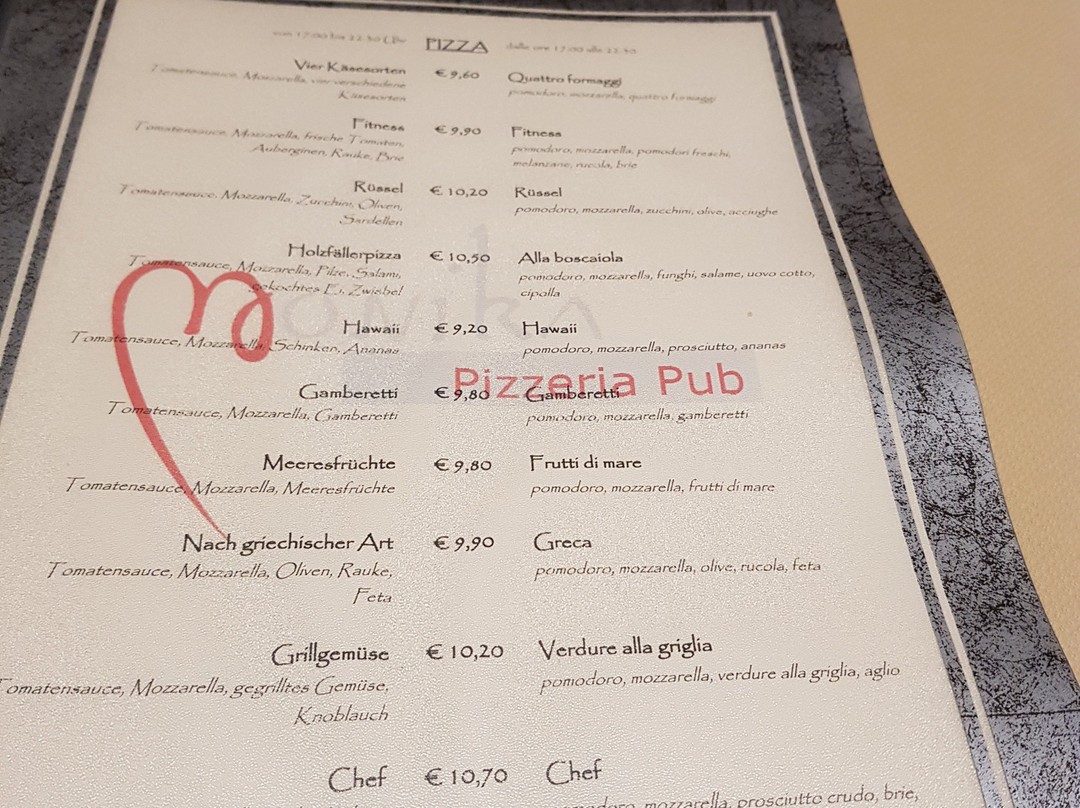 von 17:00 bis 22:30 Uhr PIZZA dalle ore 17:00 alle 22:30
Vier Käsesorten € 9,60 Quattro formaggi
Tomatensauce, Mozzarella, vier verschiedene pomodoro, mozzarella, quattro formaggi
Käsesorten
Fitness € 9,90 Fitness
Tomatensauce, Mozzarella, frische Tomaten, pomodoro, mozzarella, pomodori freschi,
Auberginen, Rauke, Brie melanzane, rucola, brie
Rüssel € 10,20 Rüssel
Tomatensauce, Mozzarella, Zucchini, Oliven, pomodoro, mozzarella, zucchini, olive, acciughe
Sardellen
Holzfällerpizza € 10,50 Alla boscaiola
Tomatensauce, Mozzarella, Pilze, Salami, pomodoro, mozzarella, funghi, salame, uovo cotto,
gekochtes Ei, Zwiebel cipolla
monika
Hawaii € 9,20 Hawaii
Tomatensauce, Mozzarella, Schinken, Ananas pomodoro, mozzarella, prosciutto, ananas
Pizzeria Pub
Gamberetti € 9,80 Gamberetti
Tomatensauce, Mozzarella, Gamberetti pomodoro, mozzarella, gamberetti
Meeresfrüchte € 9,80 Frutti di mare
Tomatensauce, Mozzarella, Meeresfrüchte pomodoro, mozzarella, frutti di mare
Nach griechischer Art € 9,90 Greca
Tomatensauce, Mozzarella, Oliven, Rauke, pomodoro, mozzarella, olive, rucola, feta
Feta
Grillgemüse € 10,20 Verdure alla griglia
Tomatensauce, Mozzarella, gegrilltes Gemüse, pomodoro, mozzarella, verdure alla griglia, aglio
Knoblauch
Chef € 10,70 Chef
pomodoro, mozzarella, prosciutto crudo, brie,